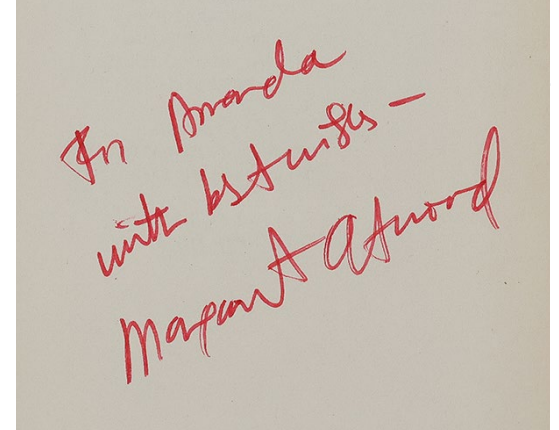 For Amanda
with best wishes –
Margaret Atwood